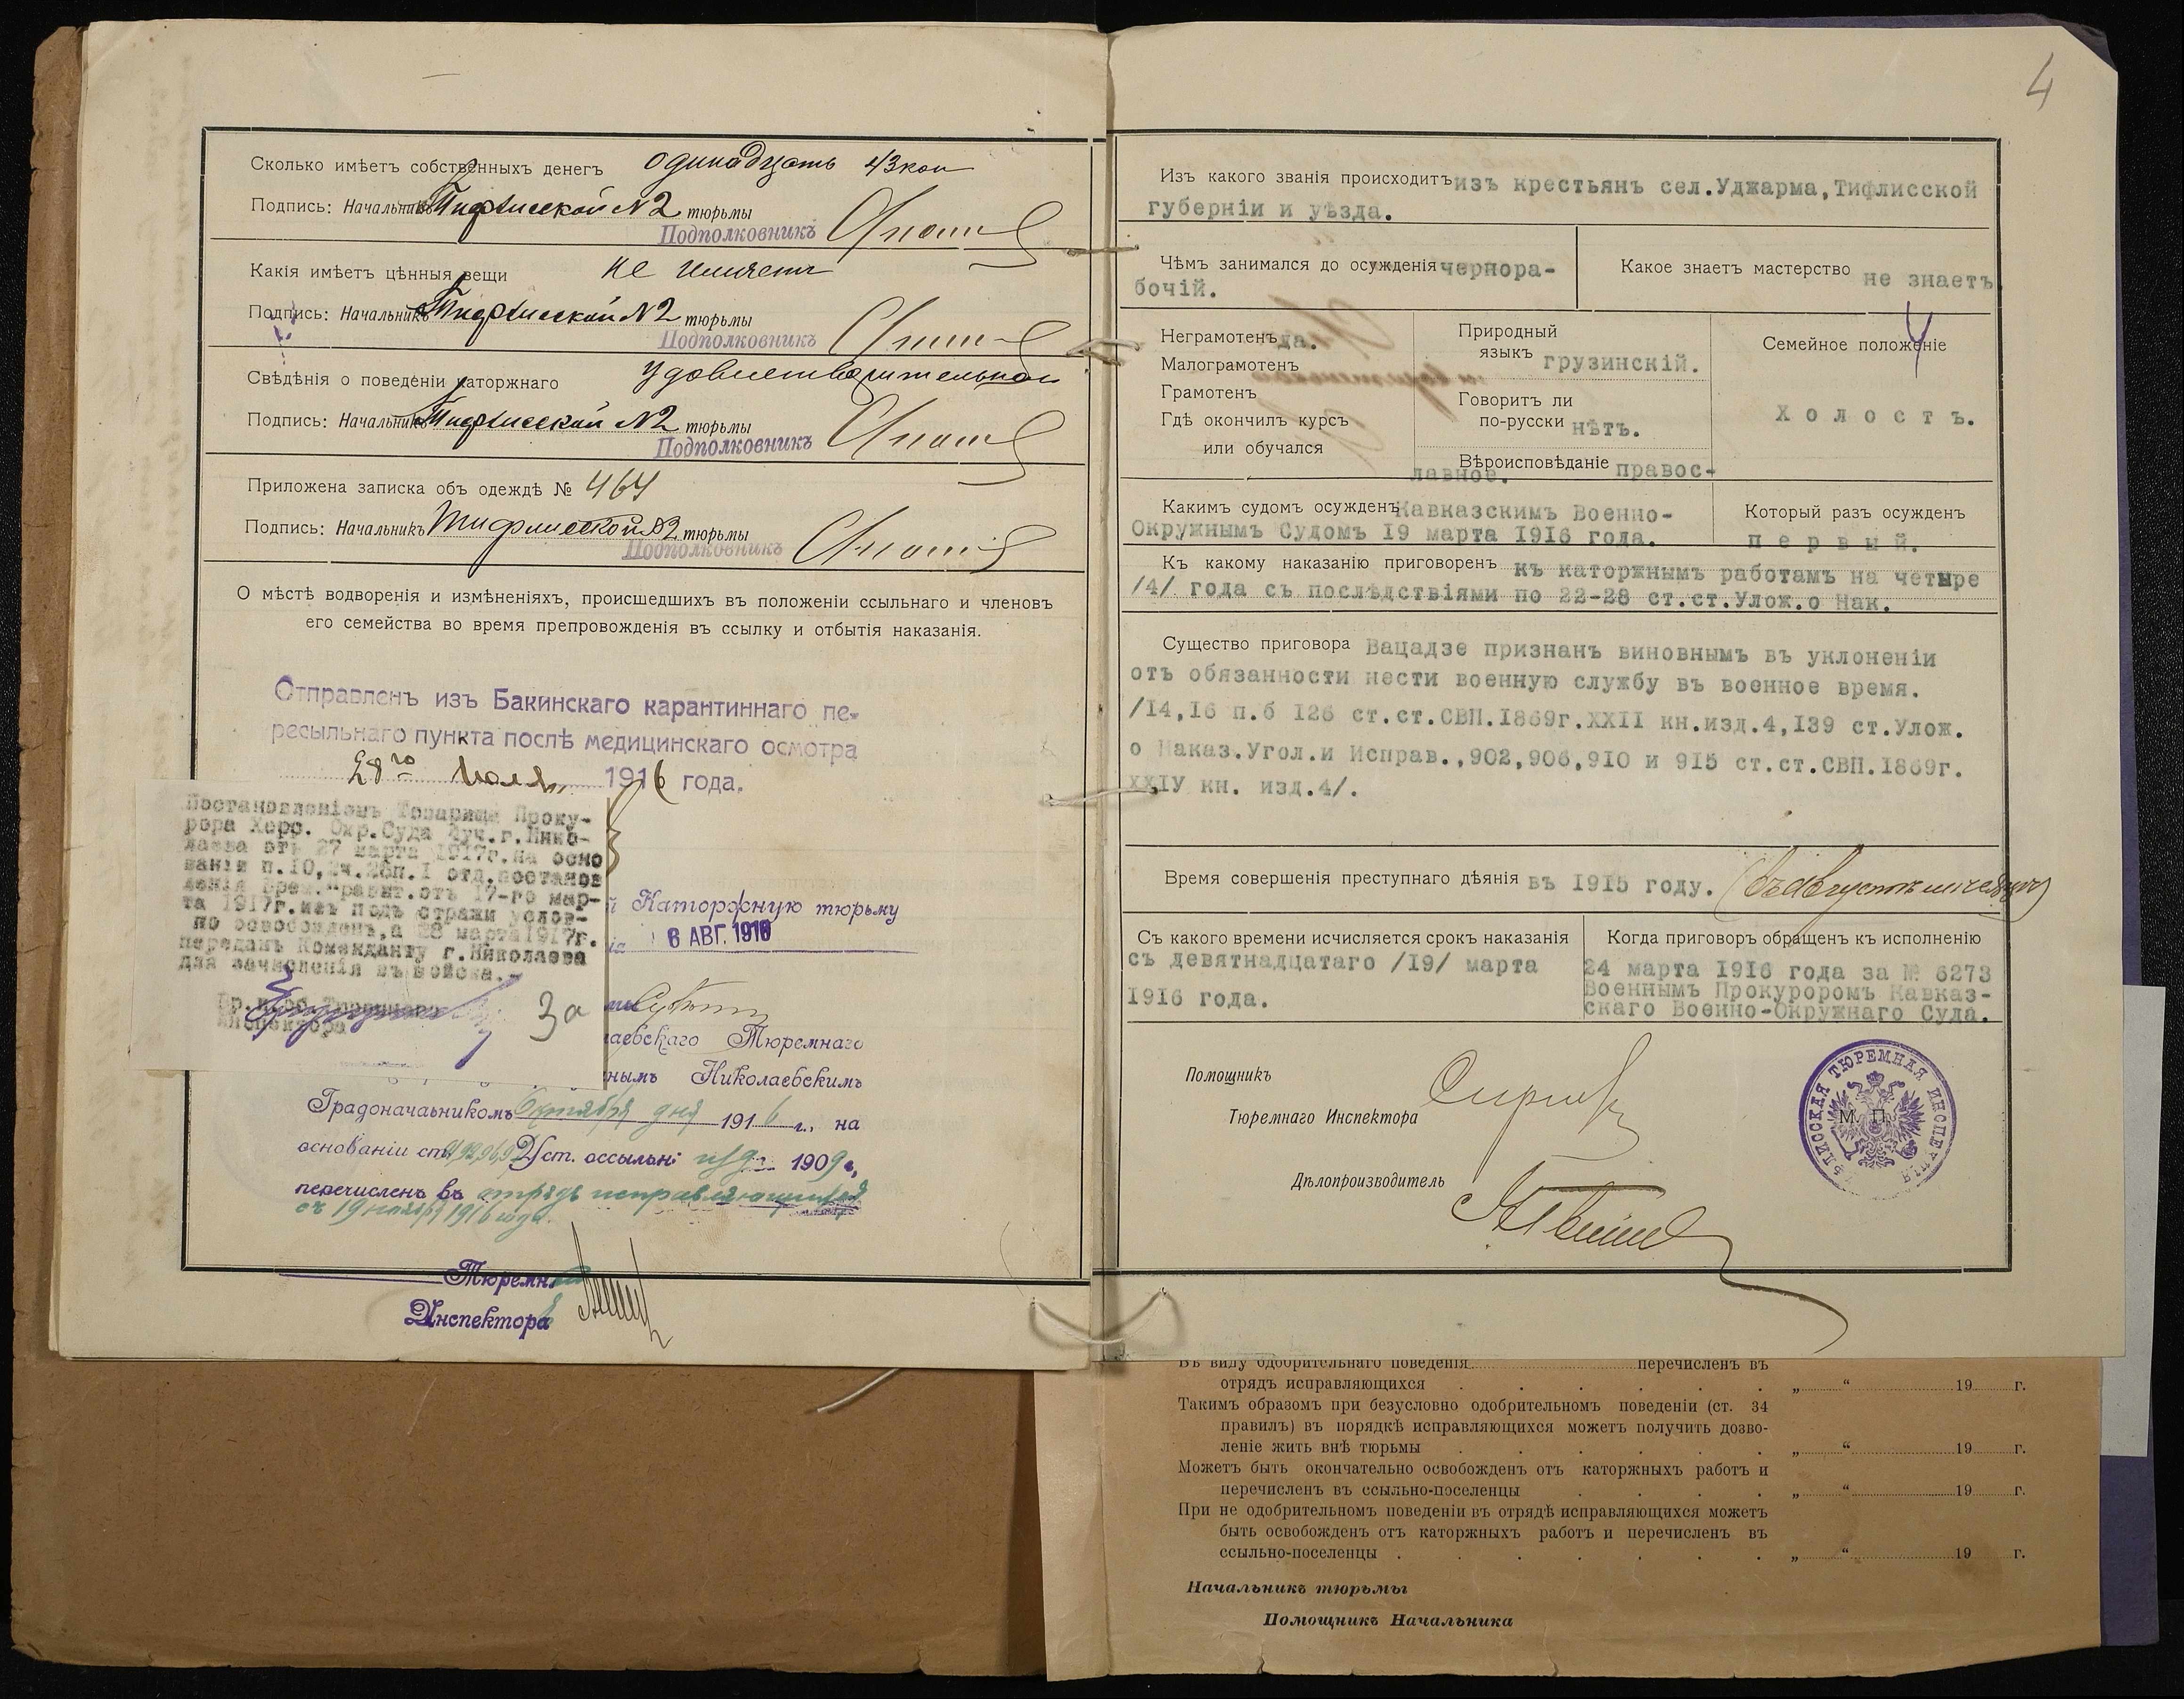 Сколько имѣетъ собственныхъ денегъ одинадцать 43 коп
Подпись: Начальникъ Тифлисской N 2 тюрьмы
Подполковникъ
Какія имѣетъ цѣнныя вещи не имѣетъ
Подпись: Начальникъ Тифлисской N 2 тюрьмы
Подполковникъ
Свѣдѣнія о поведеніи каторжнаго
Подпись: Начальникъ Тифлисской N 2 тюрьмы
Подполковникъ
Приложена записка объ одеждѣ № 464
Подпись: Начальникъ Тифлисской № 2 тюрьмы
Подполковникъ
О мѣстѣ водворенія и измѣненіяхъ, происшедшихъ въ положеніи ссыльнаго и членовъ
его семейства во время препровожденія въ ссылку и отбытія наказанія.
Отправленъ изъ Бакинскаго карантиннаго пе-
ресыльнаго пункта послѣ медицинскаго осмотра
28го Июля 1916 года.
Постановленіемъ Товарища Проку-
рора Херс. Окр.Суда 2уч.г.Нико-
лаева отъ 27 марта 1917г.на осно
ваніи п.10, отд.постанов
ленія Врем. отъ 17-го мар-
та 1917г.изъ подъ стражи услов-
но освобожденъ,а 28 марта 1917г.
переданъ Коменданту г.Николаева
для зачисленія въ войска.-
Инспектора
3а
й Каторжную тюрьму
6 АВГ. 1916
аевскаго Тюремнаго
нымъ Николаевскимъ
Градоначальникомъ Октября дня 1916 г., на
основаніи ст. Уст. о ссыльн: изд. 1909 г,
перечисленъ въ отрядъ исправляющихся
съ 19 ноября 1916 года.
Тюремн
Инспектора
4
Изъ какого званія происходитъ изъ крестьянъ сел.Уджарма,Тифлисской
губерніи и уѣзда.
Чѣмъ занимался до осужденія чернора-
бочій.
Какое знаетъ мастерство не знаетъ
Неграмотенъ да.
Малограмотенъ
Грамотенъ
Гдѣ окончилъ курсъ
или обучался
Природный
языкъ грузинскій.
Говоритъ ли
по-русски нѣтъ.
Вѣроисповѣданіе правос-
лавное.
Семейное положеніе
Холостъ.
Какимъ судомъ осужденъ Кавказскимъ Военно-
Окружнымъ Судомъ 19 марта 1916 года.
Который разъ осужденъ
первый.
Къ какому наказанію приговоренъ къ каторжнымъ работамъ на четыре
/4/ года съ послѣдствіями по 22-28 ст.ст.Улож.о Нак.
Существо приговора Вацадзе признанъ виновнымъ въ уклоненіи
отъ обязанности нести военную службу въ военное время.
/14,16 п.б 126 ст.ст.СВП.1869г.XXII кн.изд.4,139 ст.Улож.
о Наказ.Угол.и Исправ.,902,906,910 и 915 ст.ст.СВП.1869г.
XXIV кн. изд.4/.
Время совершенія преступнаго дѣянія въ 1915 году. (въ Августѣ мѣсяцѣ)
Съ какого времени исчисляется срокъ наказанія
съ девятнадцатаго /19/ марта
1916 года.
Когда приговоръ обращенъ къ исполненію
24 марта 1916 года за № 6273
Военнымъ Прокуроромъ Кавказ-
скаго Военно-Окружнаго Суда.
Помощникъ
Тюремнаго Инспектора
Дѣлопроизводитель
М. П.
ТЮРЕМНАЯ ИНСПЕКЦІЯ
Въ виду одобрительнаго поведенія перечисленъ въ
отрядъ исправляющихся . . . . . . „ “ 19 г.
Такимъ образомъ при безусловно одобрительномъ поведеніи (ст. 34
правилъ) въ порядкѣ исправляющихся можетъ получить дозво-
леніе жить внѣ тюрьмы . . . . . . „ “ 19 г.
Можетъ быть окончательно освобожденъ отъ каторжныхъ работъ и
перечисленъ въ ссыльно-поселенцы . . . . „ “ 19 г.
При не одобрительномъ поведеніи въ отрядѣ исправляющихся можетъ
быть освобожденъ отъ каторжныхъ работъ и перечисленъ въ
ссыльно-поселенцы . . . . . . . „ “ 19 г.
Начальникъ тюрьмы
Помощникъ Начальника